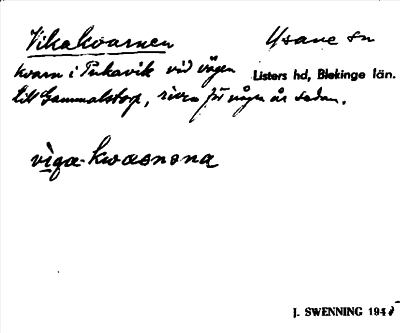 Vikakvarnen Ysane sn
kvarn i Pukavik vid vägen Listers hd, Blekinge län.
till Gammalstorp, riven för några år sedan.
viga-kwaṇṇa
J. SWENNING 194